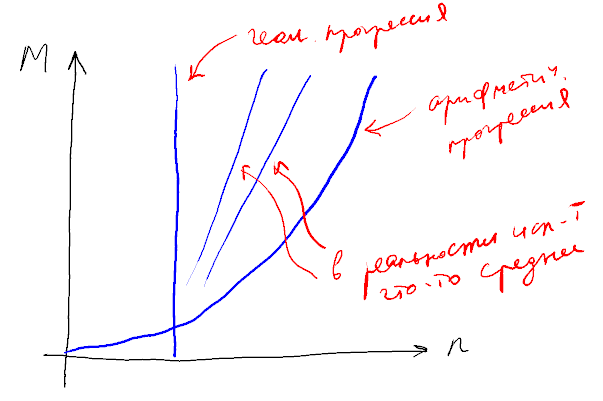 геом. прогрессия
M
арифметич.
прогрессия
в реальности исп-т
что-то среднее
n